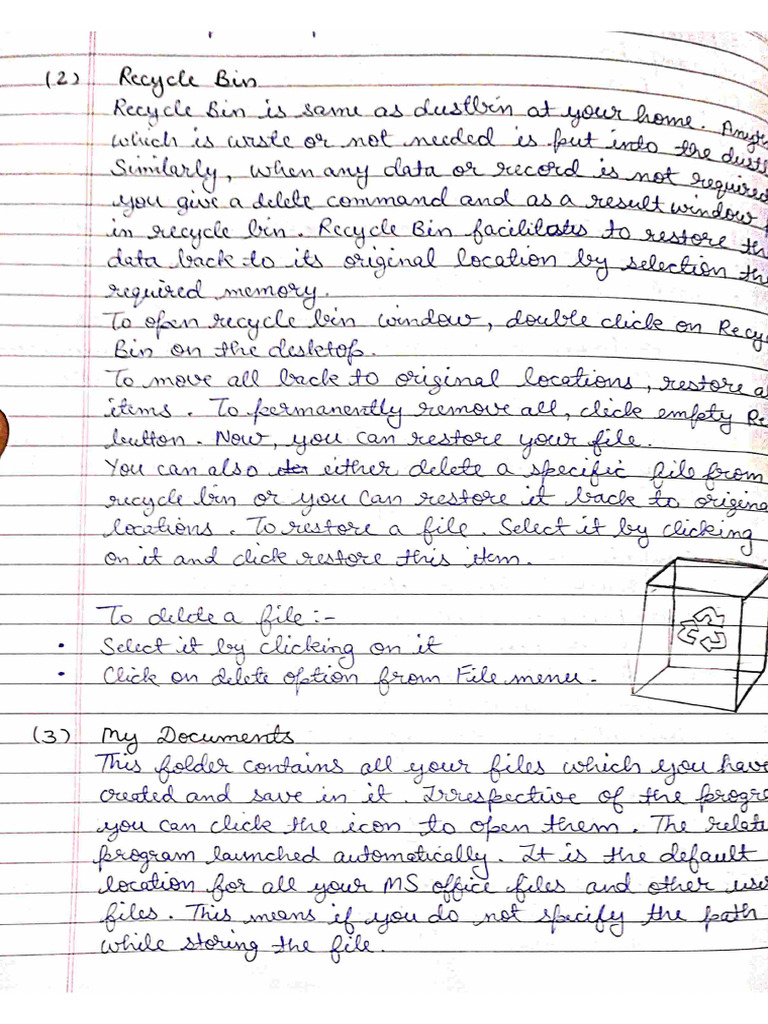 (2) Recycle Bin
Recycle Bin is same as dustbin at your home.
which is wrste or not needed is put into the
Similarly, when any data or record is not required
you give a delete command and as a result window
in recycle bin. Recycle Bin facilitates to restore
data back to its original location by selection
required memory.
To open recycle bin window, double click on
Bin on the desktop.
To move all back to original locations, restore
items. To permanently remove all, click empty
button. Now, you can restore your file.
You can also either delete a specific file from
recycle bin or you can restore it back to
locations. To restore a file. Select it by clicking
on it and click restore this item.
To delete a file:-
• Select it by clicking on it
• Click on delete option from File menu.
(3) My Documents
This folder contains all your files which you have
created and save in it. Irrespective of the
you can click the icon to open them. The
program launched automatically. It is the default
location for all your MS office files and other
files. This means if you do not specify the path
while storing the file.